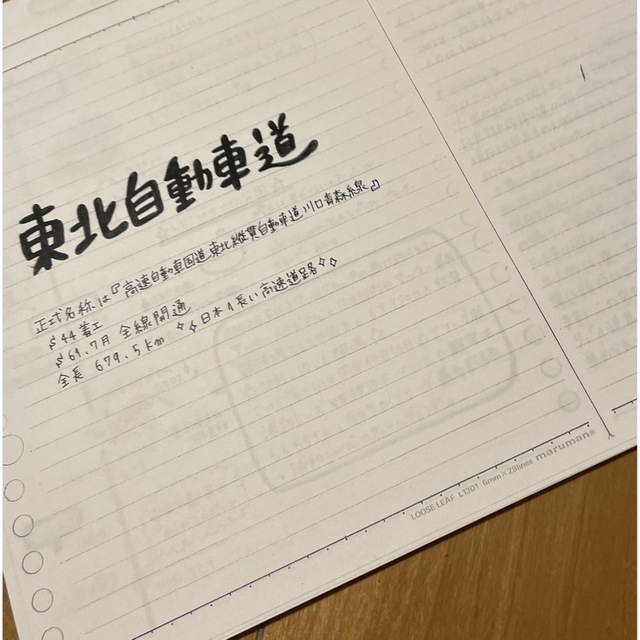 東北自動車道
正式名称は『高速自動車国道東北縦貫自動車道川口青森線』
S44着工
S61.7月 全線開通
全長 679.5km ✧✧日本1長い高速道路✧✧
LOOSE LEAF L1301 6mm×29lines maruman®